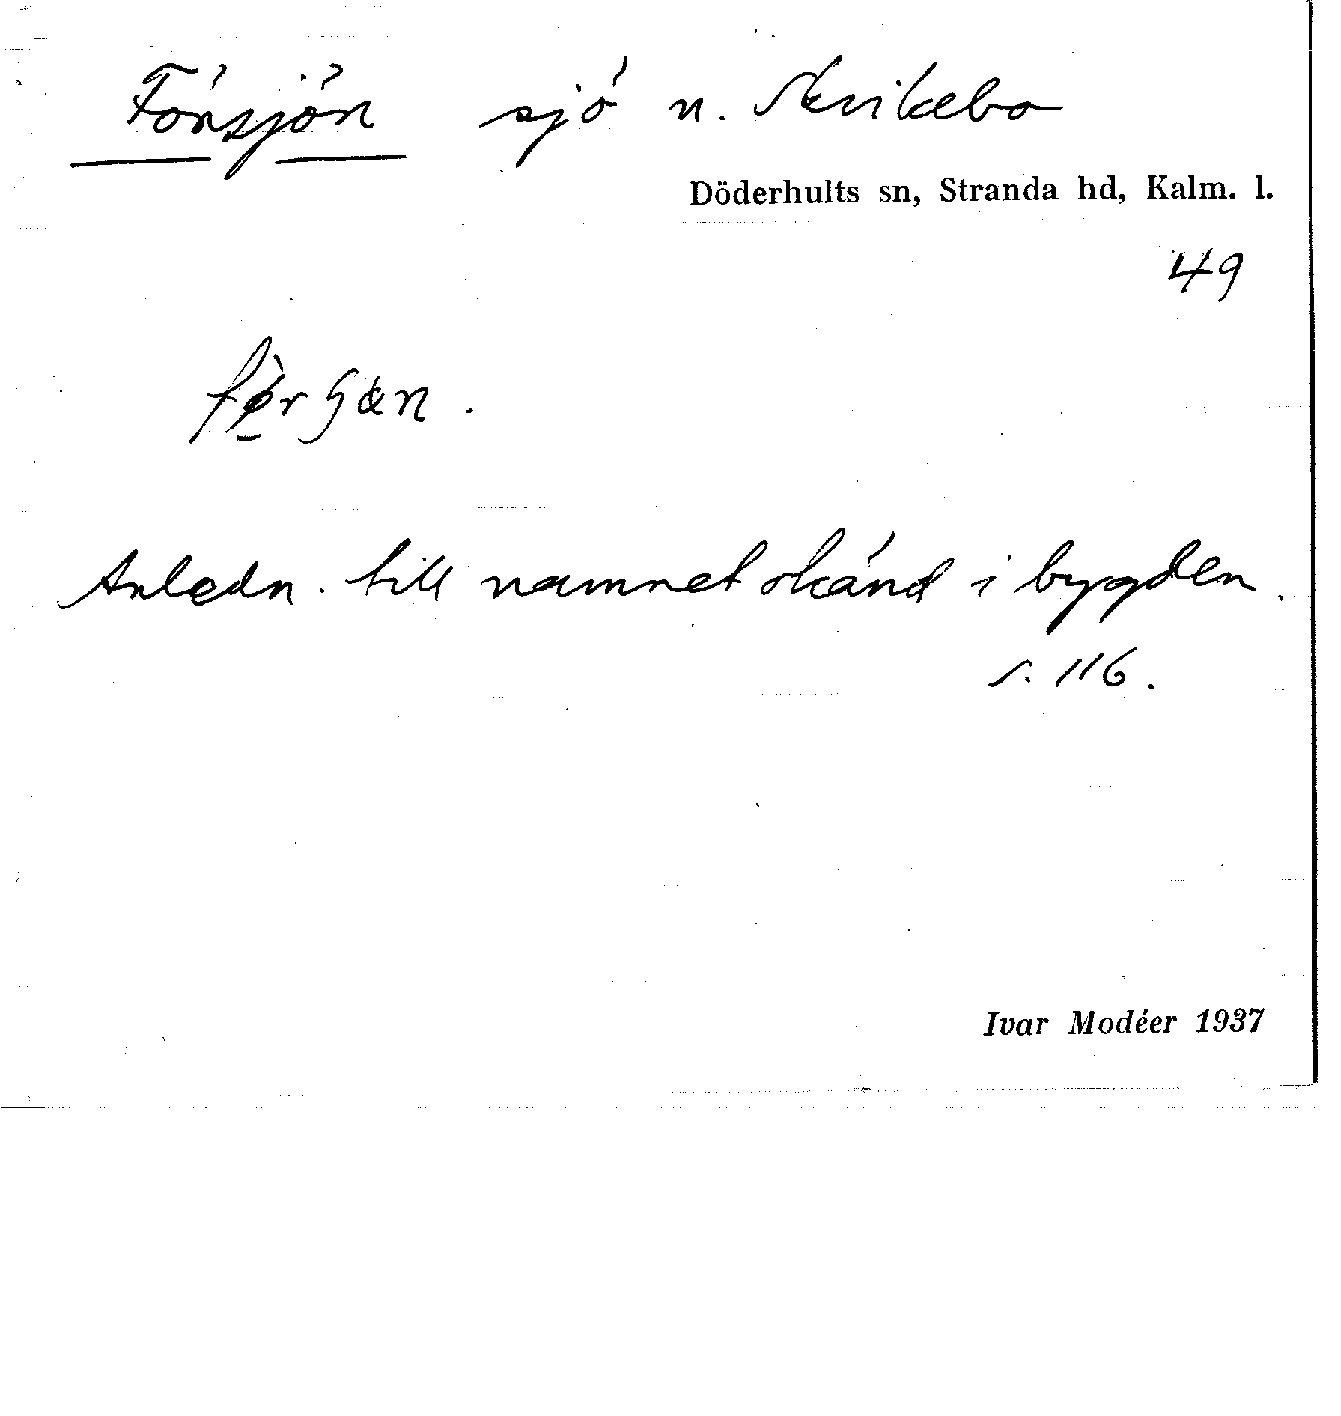 Försjön sjö n. Skrikebo
Döderhults sn, Stranda hd, Kalm. l.
49
Anledn. till namnet okänd i bygden.
s. 116.
Ivar Modéer 1937